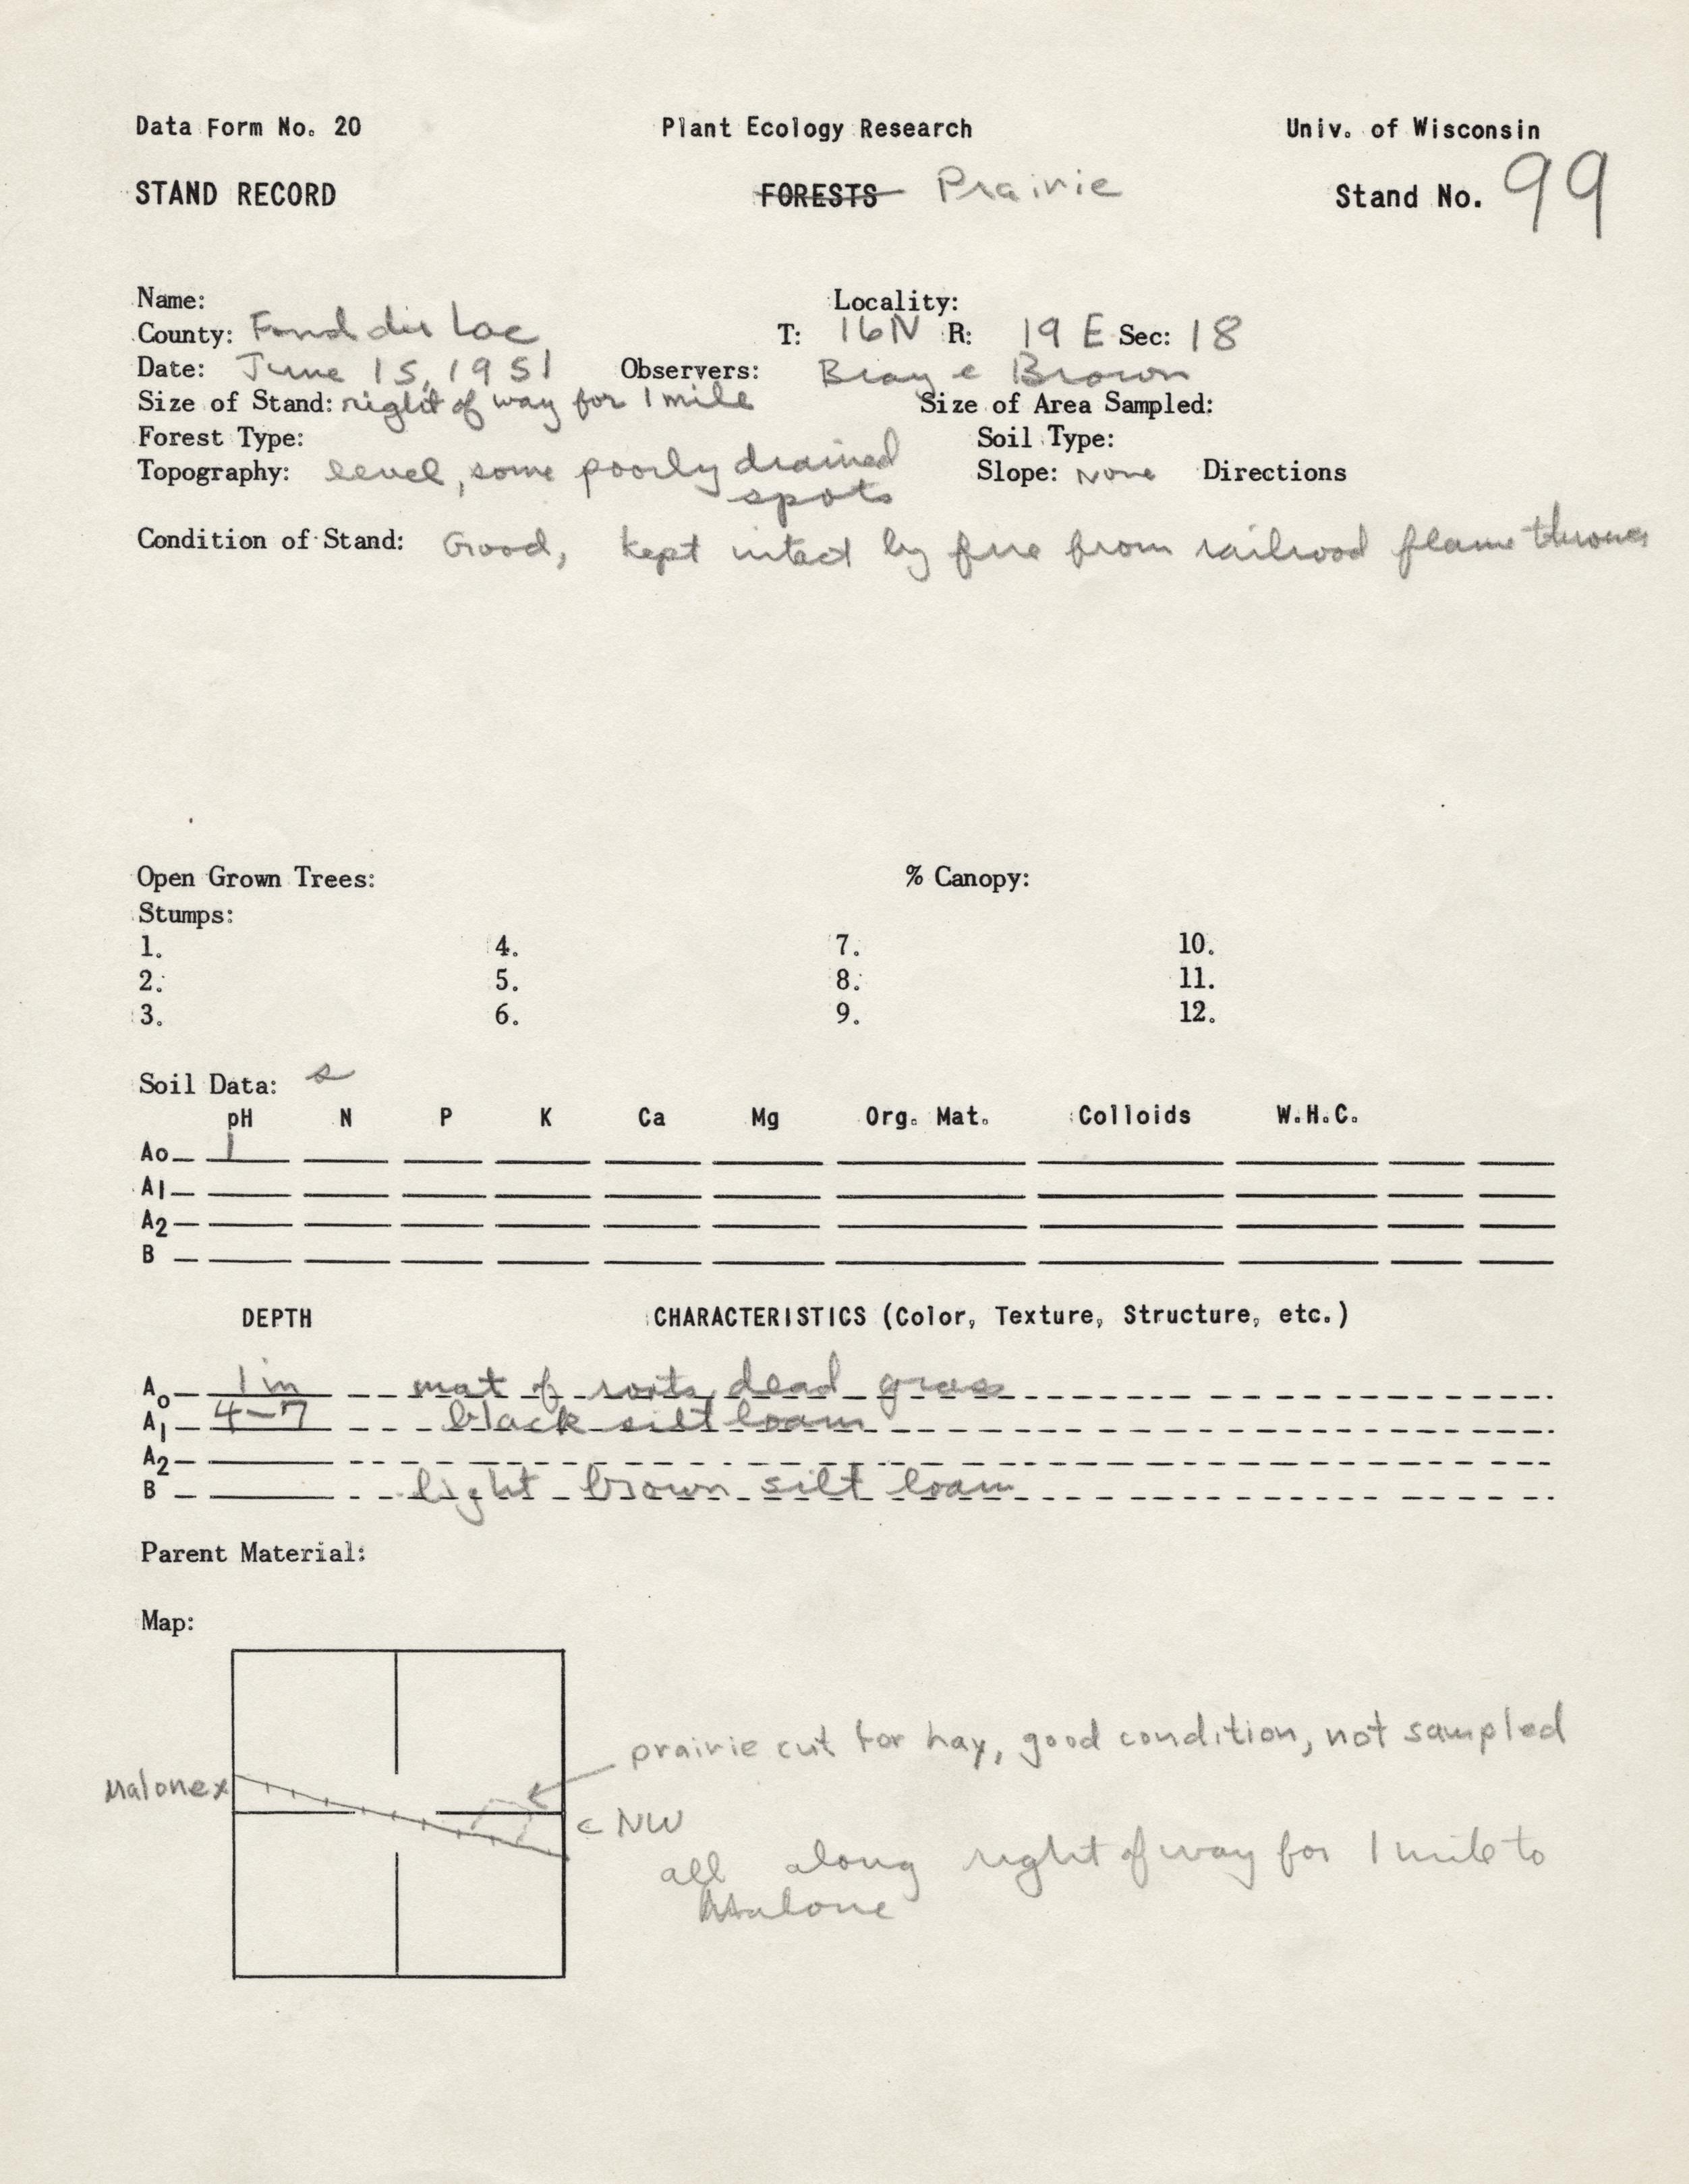 Data Form No. 20 Plant Ecology Research Univ. of Wisconsin
STAND RECORD FORESTS Prairie Stand No. 99
Name: Locality:
County: Fond du Lac T: 16N R: 19 E Sec: 18
Date: June 15, 1951 Observers: Bray & Brown
Size of Stand: right of way for 1 mile Size of Area Sampled:
Forest Type: Soil Type:
Topography: level, some poorly drained Slope: None Directions
spots
Condition of Stand: Good, kept intact by fire from railroad flame thrower
Open Grown Trees: % Canopy:
Stumps:
1. 4. 7. 10.
2. 5. 8. 11.
3. 6. 9. 12.
Soil Data:
pH N P K Ca Mg Org. Mat. Colloids W.H.C.
Ao
A1
A2
B
DEPTH CHARACTERISTICS (Color, Texture, Structure, etc.)
Ao 1 in mat of roots, dead grass
A1 4-7 black silt loam
A2
B light brown silt loam
Parent Material:
Map:
prairie cut for hay, good condition, not sampled
Malone x
NW
all along right of way for 1 mile to
Malone